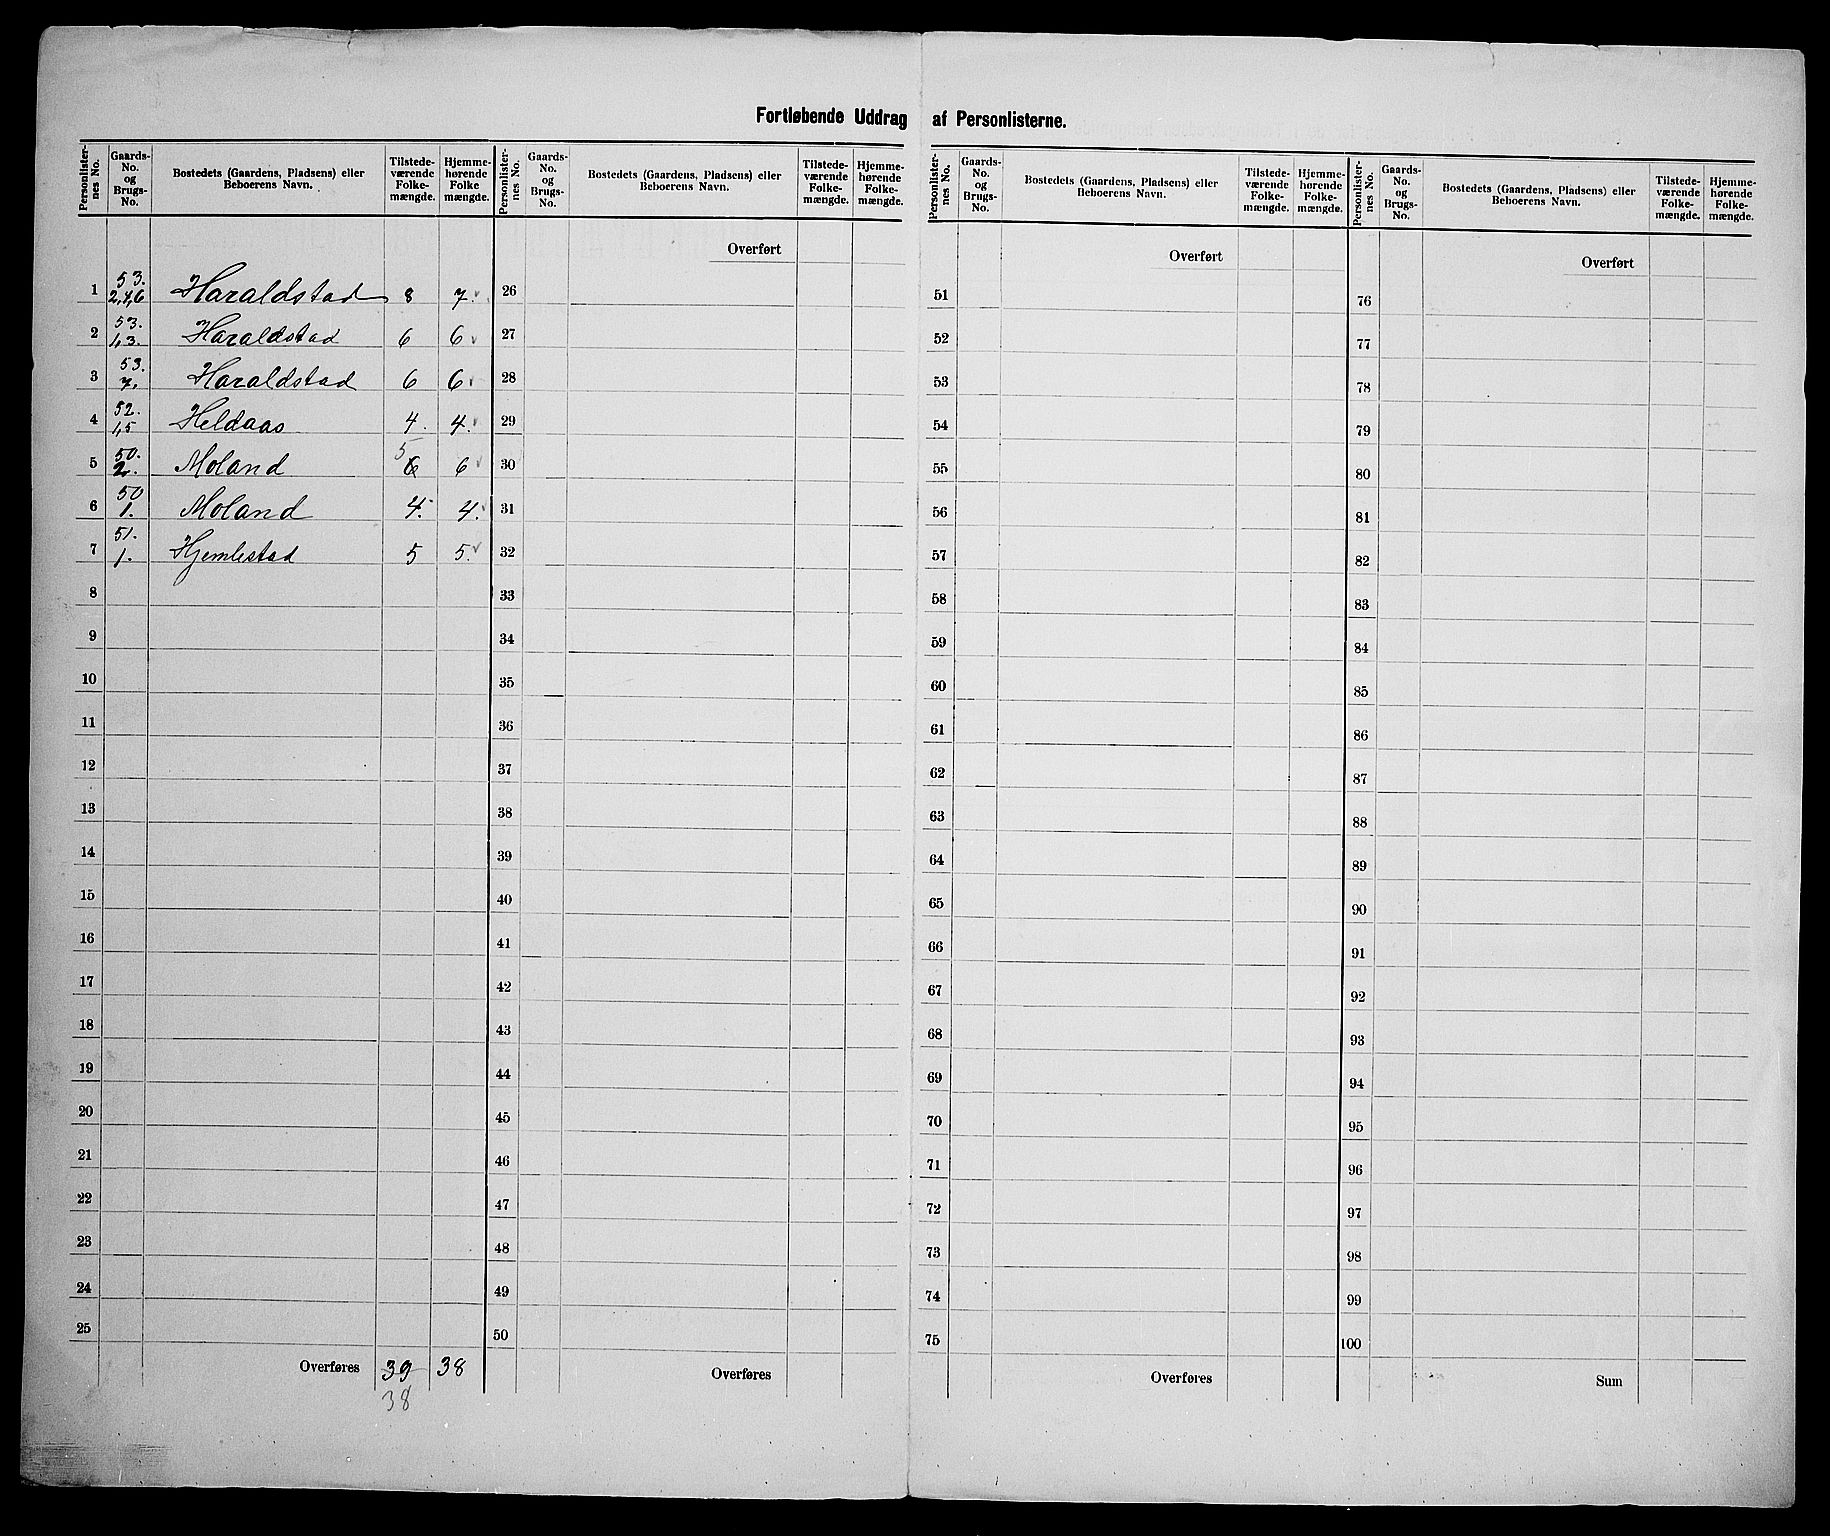 Fortløbende Uddrag af Personlisterne.
Personlister-nes No. | Gaards-No. og Brugs-No. | Bostedets (Gaardens, Pladsens) eller Beboerens Navn. | Tilstede-værende Folke-mængde. | Hjemme-hørende Folke mængde.
1 | 53. 2,4,6 | Haraldstad | 8 | 7.
2 | 53. 1,3. | Haraldstad | 6 | 6
3 | 53. 7. | Haraldstad | 6 | 6
4 | 52. 1,5 | Heldaas | 4. | 4.
5 | 50. 2. | Moland | 5 6 | 6
6 | 50 1. | Moland | 4. | 4.
7 | 51. 1. | Hjemlestad | 5 | 5.
8
9
10
11
12
13
14
15
16
17
18
19
20
21
22
23
24
25
Overføres 39 38
38
Personlister-nes No. | Gaards-No. og Brugs-No. | Bostedets (Gaardens, Pladsens) eller Beboerens Navn. | Tilstede-værende Folke-mængde. | Hjemme-hørende Folke-mængde.
Overført
26
27
28
29
30
31
32
33
34
35
36
37
38
39
40
41
42
43
44
45
46
47
48
49
50
Overføres
Personlister-nes No. | Gaards-No. og Brugs-No. | Bostedets (Gaardens, Pladsens) eller Beboerens Navn. | Tilstede-værende Folke-mængde. | Hjemme-hørende Folke-mængde.
Overført
51
52
53
54
55
56
57
58
59
60
61
62
63
64
65
66
67
68
69
70
71
72
73
74
75
Overføres
Personlister-nes No. | Gaards-No. og Brugs-No. | Bostedets (Gaardens, Pladsens) eller Beboerens Navn. | Tilstede-værende Folke-mængde. | Hjemme-hørende Folke-mængde.
Overført
76
77
78
79
80
81
82
83
84
85
86
87
88
89
90
91
92
93
94
95
96
97
98
99
100
Sum